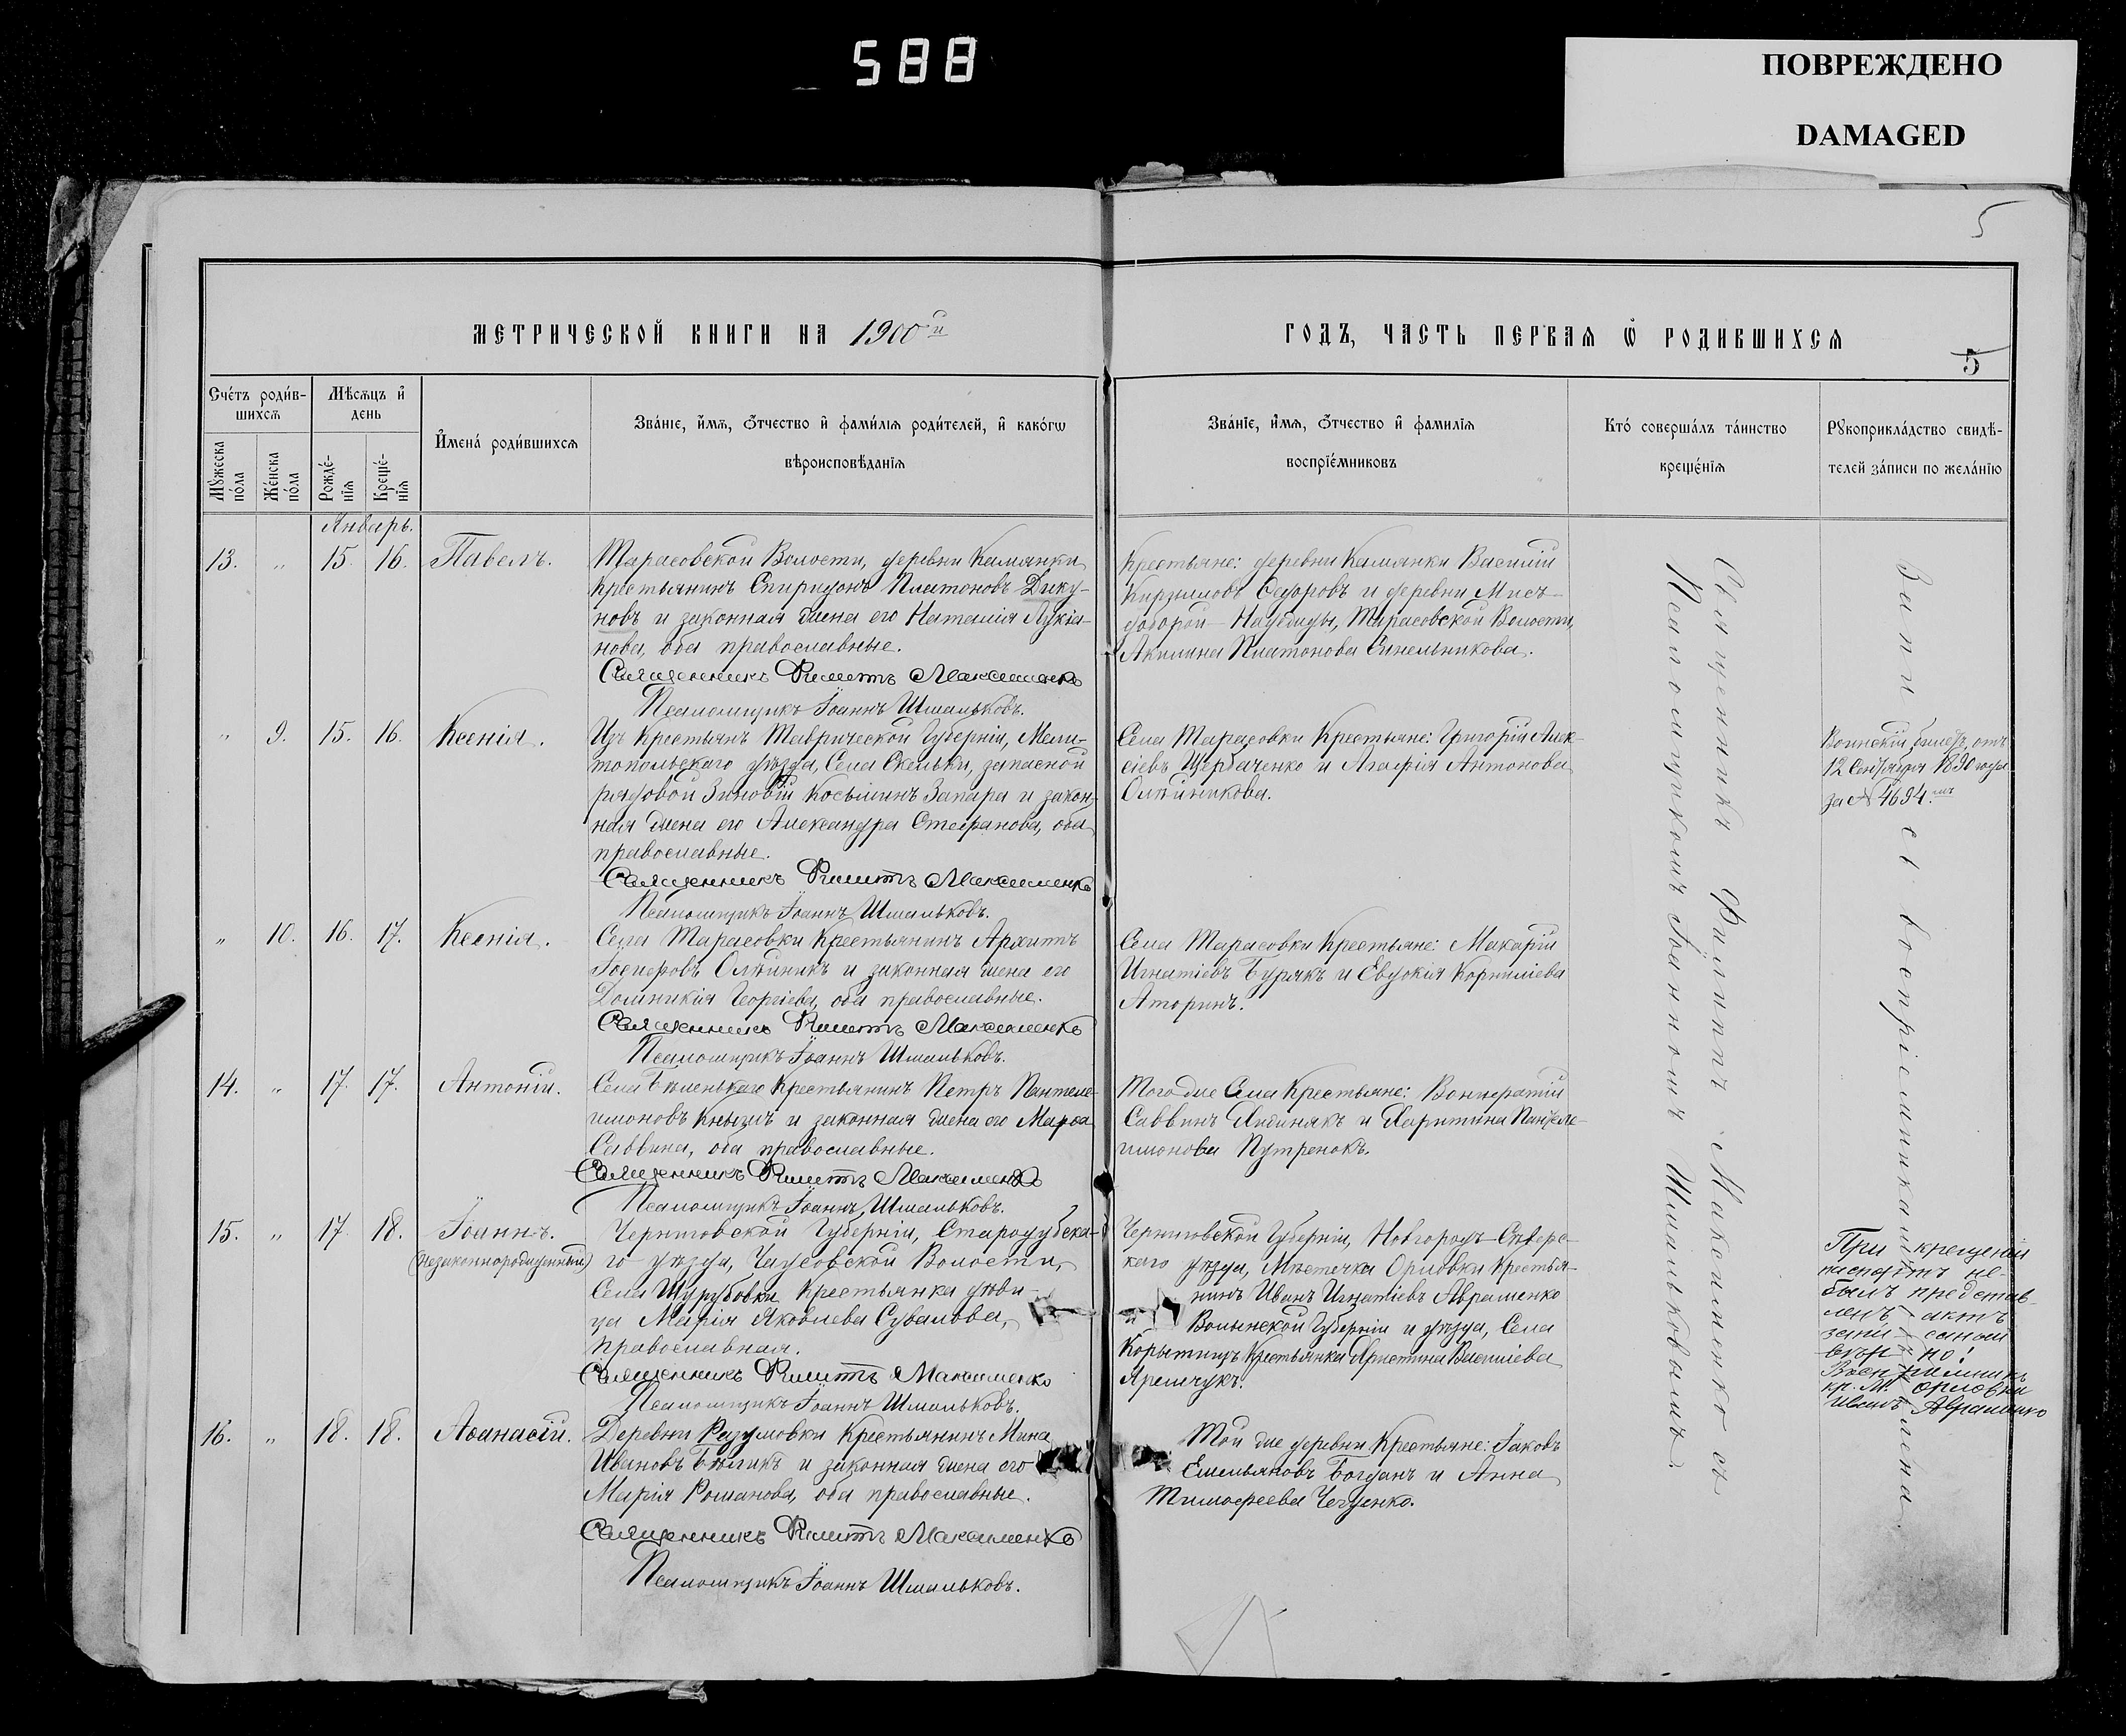 588
ПОВРЕЖДЕНО
DAMAGED
5
МЕТРИЧЕСКОЙ КНИГИ НА 1900й
ГОДЪ, ЧАСТЬ ПЕРВАЯ Ѡ РОДИВШИХСЯ
5
Счетъ родив-
шихся
Мѣсяцъ и
день
Мужеска
пола
Женска
пола
Рожде-
нія
Креще-
нія
Имена родившихся
Званіе, имя, отчество и фамилія родителей, и какогѡ
вѣроисповѣданія
Званіе, имя, отчество и фамилія
воспріемниковъ
Кто совершалъ таинство
крещенія
Рукоприкладство свидѣ-
телей записи по желанію
Январь.
13. " 15. 16. Павелъ.
Тарасовской Волости, деревни Камянки
крестьянинъ Спиридонъ Платоновъ Дику-
новъ и законная жена его Наталія Лукіа-
нова, оба православные.
Священникъ Филиппъ Максименко
Псаломщикъ Іоаннъ Шмальковъ.
Крестьяне: деревни Камянки Василій
Сидоровъ и деревни
Тарасовской Волости,
Акилина Платонова Синельникова.
" 9. 15. 16. Ксенія.
Изъ крестьянъ Таврической Губерніи, Мели-
топольскаго уѣзда, Села Скельки, запасной
рядовой Зиновій Косьминъ Запара и закон-
ная жена его Александра Стефанова, оба
православные.
Священникъ Филиппъ Максименко
Псаломщикъ Іоаннъ Шмальковъ.
Села Тарасовки Крестьяне: Григорій Алек-
сіевъ Щербаченко и Агафія Антонова
Олѣйникова.
Воинскій билетъ, отъ
12 Сентября 1890 года
за № 4694.
" 10. 16. 17. Ксенія.
Села Тарасовки Крестьянинъ Архиппъ
Іосифовъ Олѣйникъ и законная жена его
Домникія Георгіева, оба православные.
Священникъ Филиппъ Максименко
Псаломщикъ Іоаннъ Шмальковъ.
Села Тарасовки Крестьяне: Макарій
Игнатіевъ Бурякъ и Евдокія Корниліева
Аторинъ.
14. " 17. 17. Антоній.
Села Бѣленькаго Крестьянинъ Петръ Пантеле-
имоновъ и законная жена его Марѳа
Саввина, оба православные.
Священникъ Филиппъ Максименко
Псаломщикъ Іоаннъ Шмальковъ.
Того же Села Крестьяне: Вонифатій
Саввинъ и Харитина Пантеле-
имонова Путренокъ.
15. " 17. 18. Іоаннъ.
(Незаконнорожденный)
Черниговской Губерніи, Стародубска-
го уѣзда, Волости,
Села Крестьянка дѣви-
ца Марія Яковлева Сувалова,
православная.
Священникъ Филиппъ Максименко
Псаломщикъ Іоаннъ Шмальковъ.
Черниговской Губерніи, Новгородъ-Сѣверс-
каго уѣзда, Мѣстечка Орловки Крестья-
нинъ Иванъ Игнатіевъ Авраменко
и Волынской Губерніи и уѣзда, Села
Корытницъ Крестьянка Христина Василіева
Яремчукъ.
При крещеніи
паспортъ не
былъ представ-
ленъ - актъ
Иванъ Авраменко
16. " 18. 18. Аѳанасій.
Деревни Разумовки Крестьянинъ Мина
Ивановъ Бѣликъ и законная жена его
Марія Романова, оба православные.
Священникъ Филиппъ Максименко
Псаломщикъ Іоаннъ Шмальковъ.
Той же деревни Крестьяне: Іаковъ
Емельяновъ Богданъ и Анна
Тимофеева Чегценко.
Священникъ Филиппъ Максименко съ
Псаломщикомъ Іоанномъ Шмальковымъ.